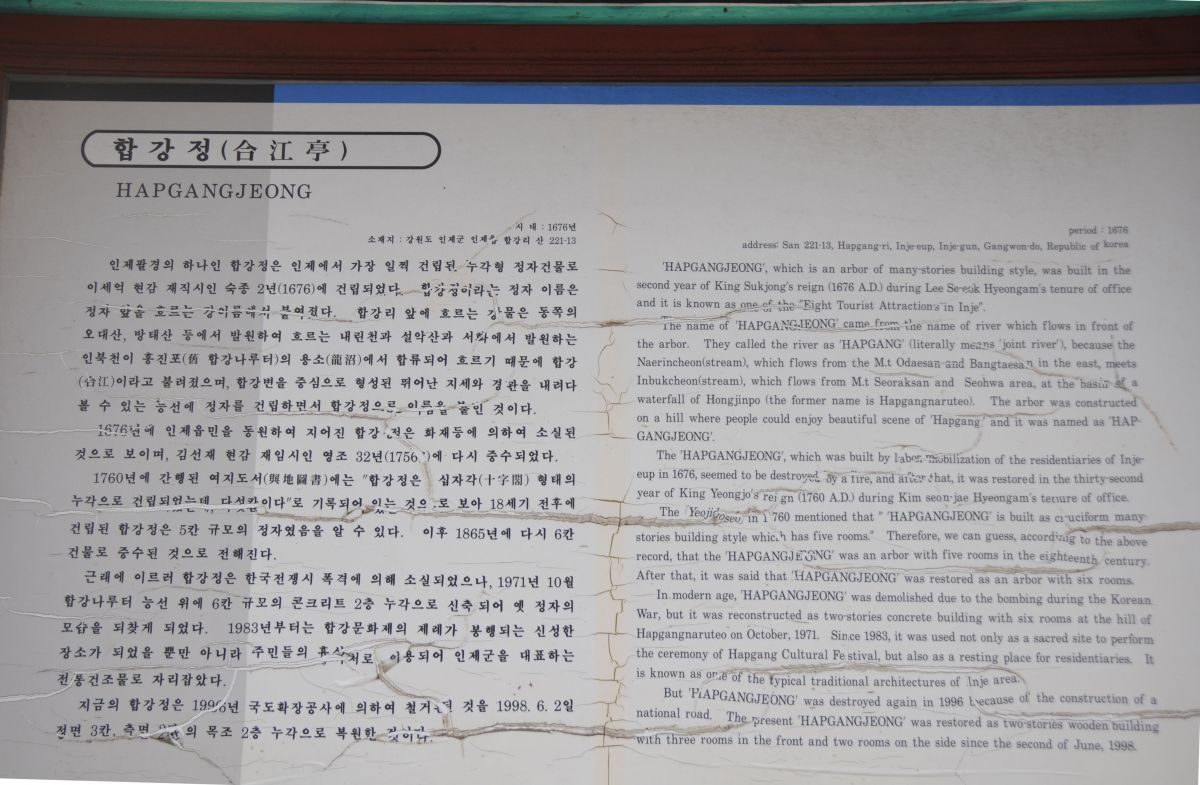 합강정(合江亭)
HAPGANGJEONG
시 대 : 1676년
소재지 : 강원도 인제군 인제읍 합강리 산 221-13
인제팔경의 하나인 합강정은 인제에서 가장 일찍 건립된 누각형 정자건물로
이세억 현감 재직시인 숙종 2년(1676)에 건립되었다. 합강정이라는 정자 이름은
정자 앞을 흐르는 강이름에서 붙여졌다. 합강리 앞에 흐르는 강물은 동쪽의
오대산, 방태산 등에서 발원하여 흐르는 내린천과 설악산과 서화에서 발원하는
인북천이 흥진포(舊 합강나루터)의 용소(龍沼)에서 합류되어 흐르기 때문에 합강
(合江)이라고 불려졌으며, 합강변을 중심으로 형성된 뛰어난 지세와 경관을 내려다
볼 수 있는 능선에 정자를 건립하면서 합강정으로 이름을 붙인 것이다.
1676년에 인제읍민을 동원하여 지어진 합강정은 화재등에 의하여 소실된
것으로 보이며, 김선재 현감 재임시인 영조 32년(1756)에 다시 중수되었다.
1760년에 간행된 여지도서(輿地圖書)에는 "합강정은 십자각(十字閣) 형태의
누각으로 건립되었는데, 다섯칸이다"로 기록되어 있는 것으로 보아 18세기 전후에
건립된 합강정은 5칸 규모의 정자였음을 알 수 있다. 이후 1865년에 다시 6칸
건물로 중수된 것으로 전해진다.
근래에 이르러 합강정은 한국전쟁시 폭격에 의해 소실되었으나, 1971년 10월
합강나루터 능선 위에 6칸 규모의 콘크리트 2층 누각으로 신축 되어 옛 정자의
모습을 되찾게 되었다. 1983년부터는 합강문화제의 제례가 봉행되는 신성한
장소가 되었을 뿐만 아니라 주민들의 휴식처로 이용되어 인제군을 대표하는
전통건조물로 자리잡았다.
지금의 합강정은 1996년 국도확장공사에 의하여 철거된 것을 1998. 6. 2일
정면 3칸, 측면 2칸의 목조 2층 누각으로 복원한 것이다.
period : 1676
address: San 221-13, Hapgang-ri, Inje-eup, Inje-gun, Gangwon-do, Republic of korea
'HAPGANGJEONG', which is an arbor of many-stories building style, was built in the
second year of King Sukjong's reign (1676 A.D.) during Lee Se-eok Hyeongam's tenure of office
and it is known as one of the "Eight Tourist Attractions in Inje".
The name of 'HAPGANGJEONG' came from the name of river which flows in front of
the arbor. They called the river as 'HAPGANG' (literally means 'joint river'), because the
Naerincheon(stream), which flows from the M.t Odaesan and Bangtaesan in the east, meets
Inbukcheon(stream), which flows from M.t Seoraksan and Seohwa area, at the basin of a
waterfall of Hongjinpo (the former name is Hapgangnaruteo). The arbor was constructed
on a hill where people could enjoy beautiful scene of 'Hapgang' and it was named as 'HAP-
GANGJEONG'.
The 'HAPGANGJEONG', which was built by labor mobilization of the residentiaries of Inje-
eup in 1676, seemed to be destroyed by a fire, and after that, it was restored in the thirty-second
year of King Yeongjo's reign (1760 A.D.) during Kim seon-jae Hyeongam's tenure of office.
The 'Yeojidoseo' in 1760 mentioned that " 'HAPGANGJEONG' is built as cruciform many-
stories building style which has five rooms." Therefore, we can guess, according to the above
record, that the 'HAPGANGJEONG' was an arbor with five rooms in the eighteenth century.
After that, it was said that 'HAPGANGJEONG' was restored as an arbor with six rooms.
In modern age, 'HAPGANGJEONG' was demolished due to the bombing during the Korean
War, but it was reconstructed as two-stories concrete building with six rooms at the hill of
Hapgangnaruteo on October, 1971. Since 1983, it was used not only as a sacred site to perform
the ceremony of Hapgang Cultural Festival, but also as a resting place for residentiaries. It
is known as one of the typical traditional architectures of Inje area.
But 'HAPGANGJEONG' was destroyed again in 1996 because of the construction of a
national road. The present 'HAPGANGJEONG' was restored as two-stories wooden building
with three rooms in the front and two rooms on the side since the second of June, 1998.